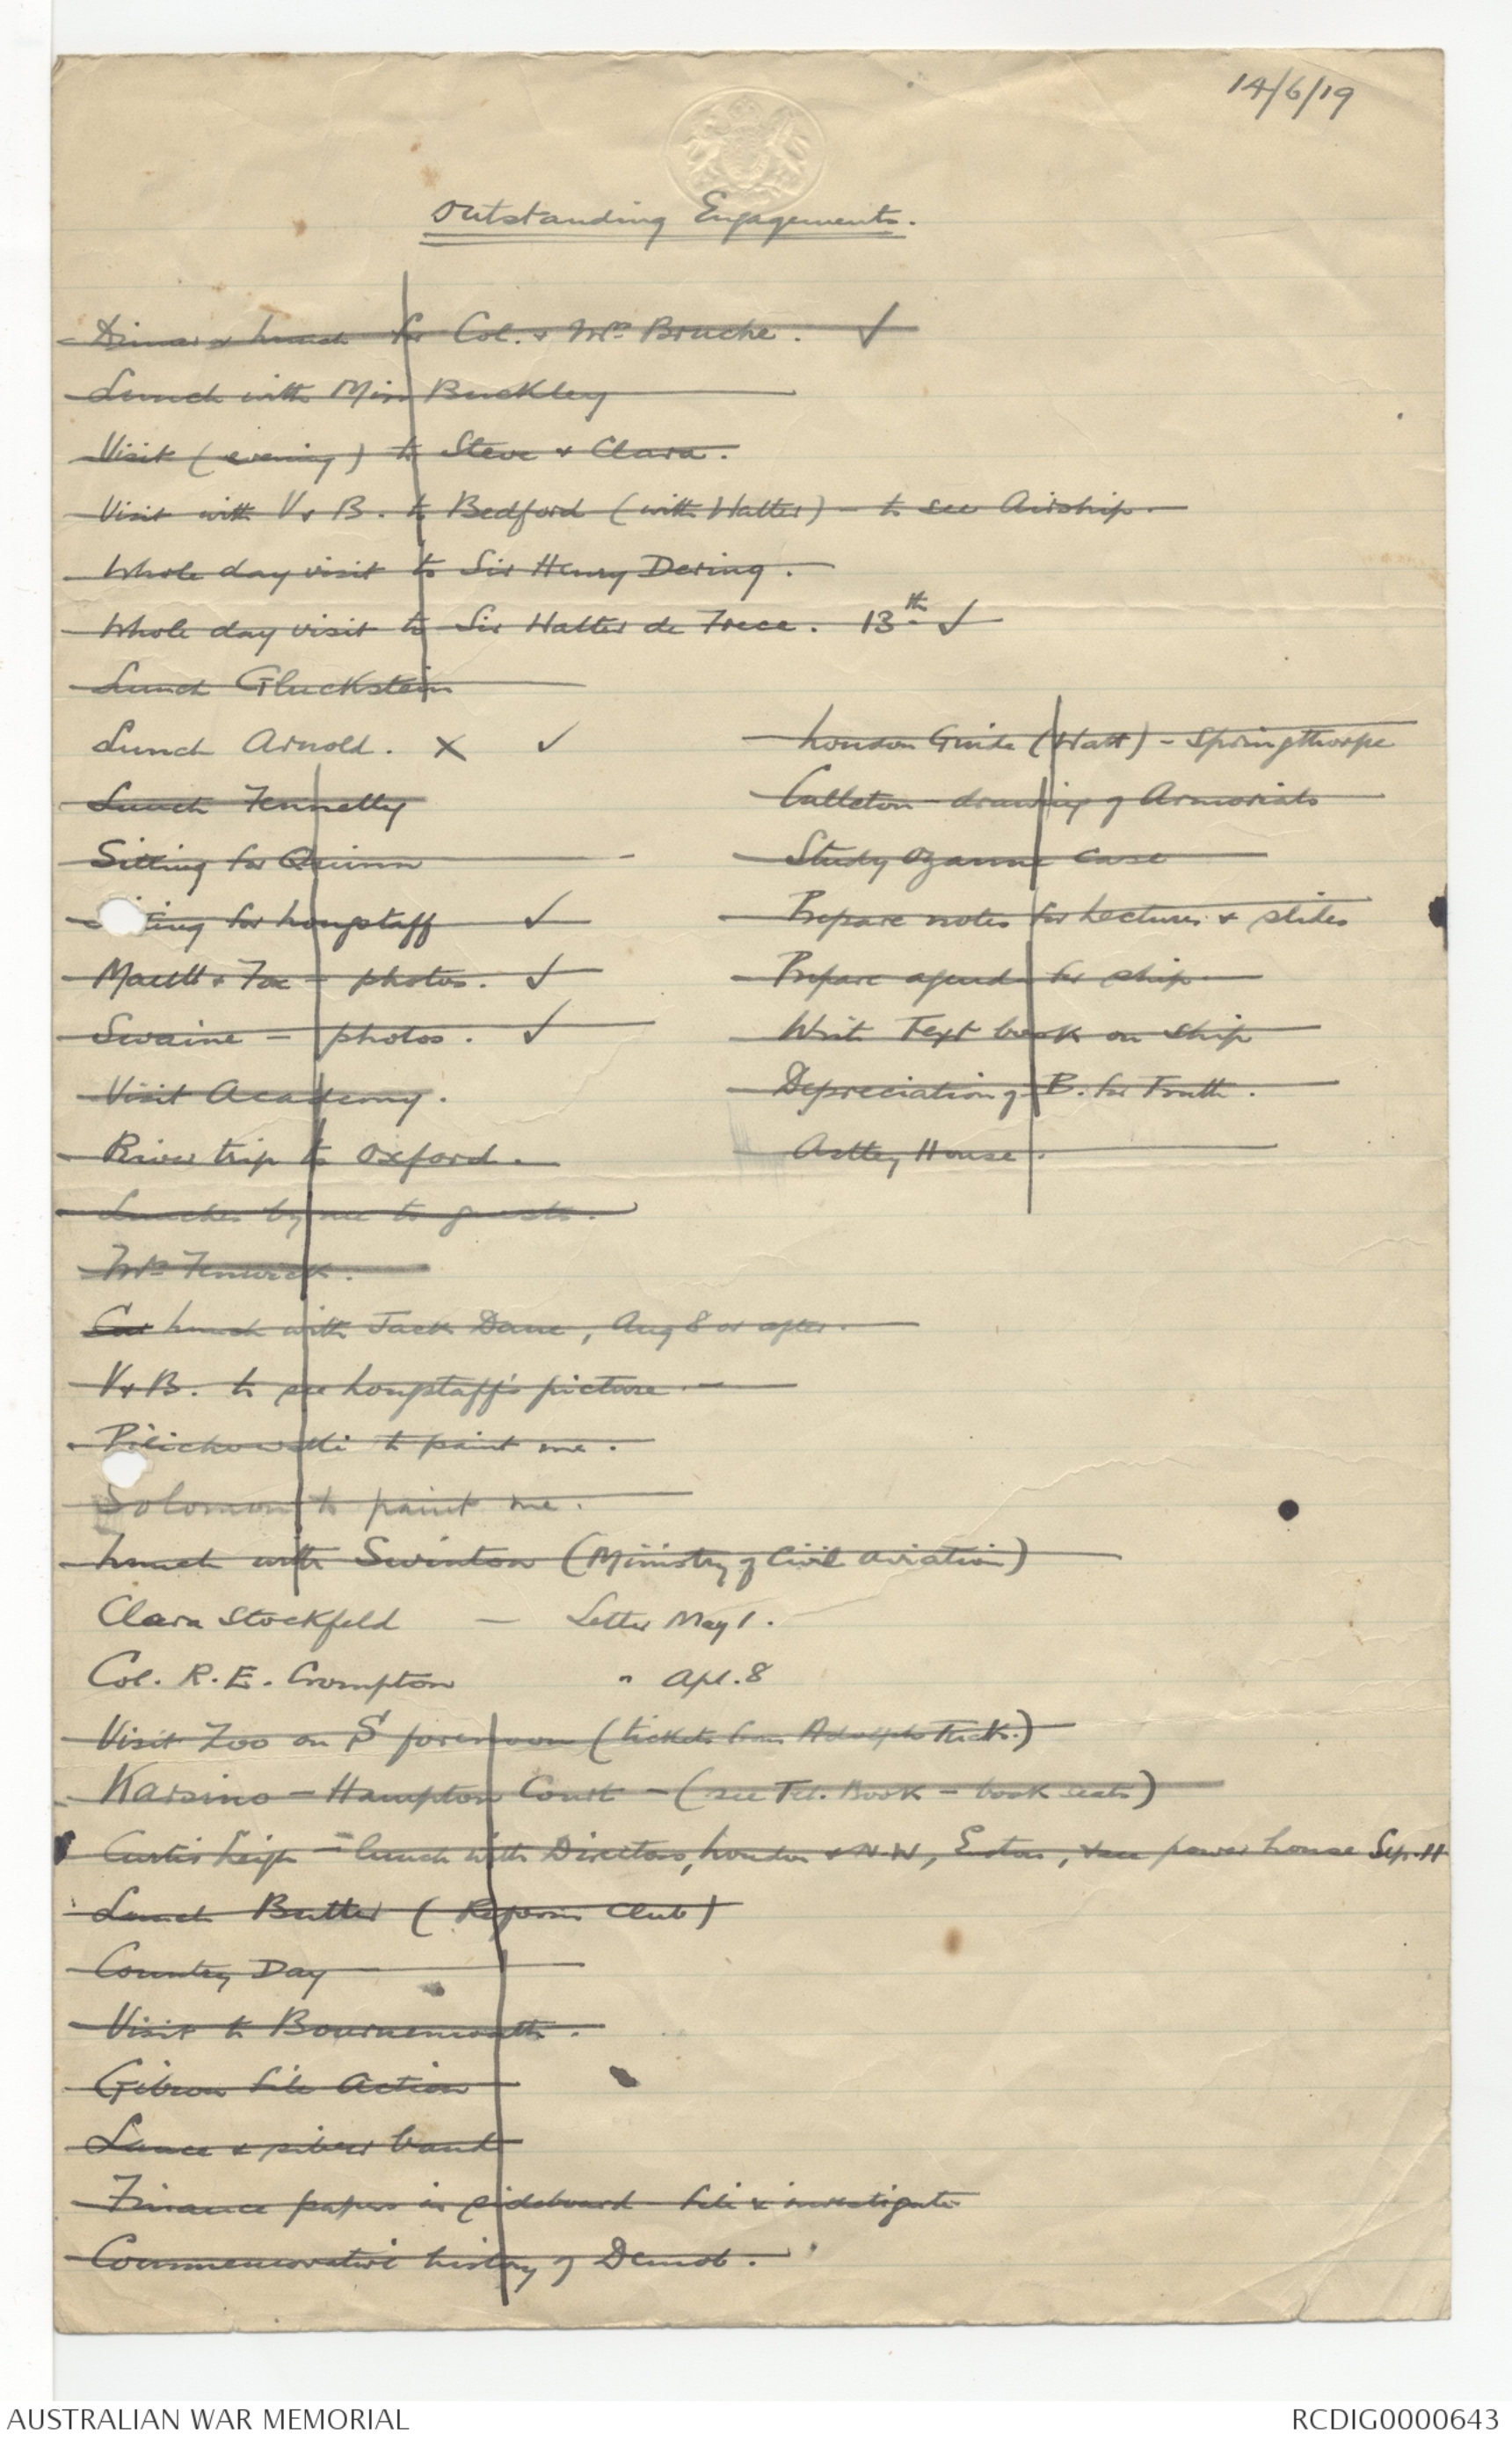 14/6/19
Outstanding Engagements.
Dinner & Lunch for Col. & Mrs Bruche. ✓
Lunch with Miss Buckley
Visit (evening) to Steve & Clara.
Visit with V & B. to Bedford (with Walter) - to see Airship.
Whole day visit to Sir Henry Dering.
Whole day visit to Sir Walter de Frece. 13th ✓
Lunch Gluckstein
Lunch Arnold. X ✓
Lunch Fennelly
Sitting for Quinn
Sitting for Longstaff ✓
Maull & Fox - photos. ✓
Swaine - photos. ✓
Visit Academy.
River trip to Oxford.
Lunches by me to guests.
Mrs Fenwick.
Lunch with Jack Dane, Aug 8 or after.
V & B. to see Longstaff's picture
Pilichowski to paint me.
Solomon to paint me.
Lunch with Swinton (Ministry of Civil Aviation)
Clara Stockfeld - Letter May 1.
Col. R. E. Crompton " Apl. 8
Visit Zoo on S forenoon (tickets from Adolph Tuck.)
Karsino - Hampton Court - (see Tel. Book - book seats)
Curtis Leigh - lunch with Directors, London & N.W, Euston, & see power house Sep. 11
Lunch Butler (Reform Club)
Country Day
Visit to Bournemouth.
Gibson file Action
Lance & silver band
Finance papers in sideboard - file & investigate
Commemorative history of Demob.
London Guide (Watt) - Springthorpe
Culleton drawing of Armorials
Study Ozanne case
Prepare notes for Lectures & slides
Prepare agenda for ship
Write Text book on ship
Depreciation of B. for Truth.
Astley House.
AUSTRALIAN WAR MEMORIAL
RCDIG0000643